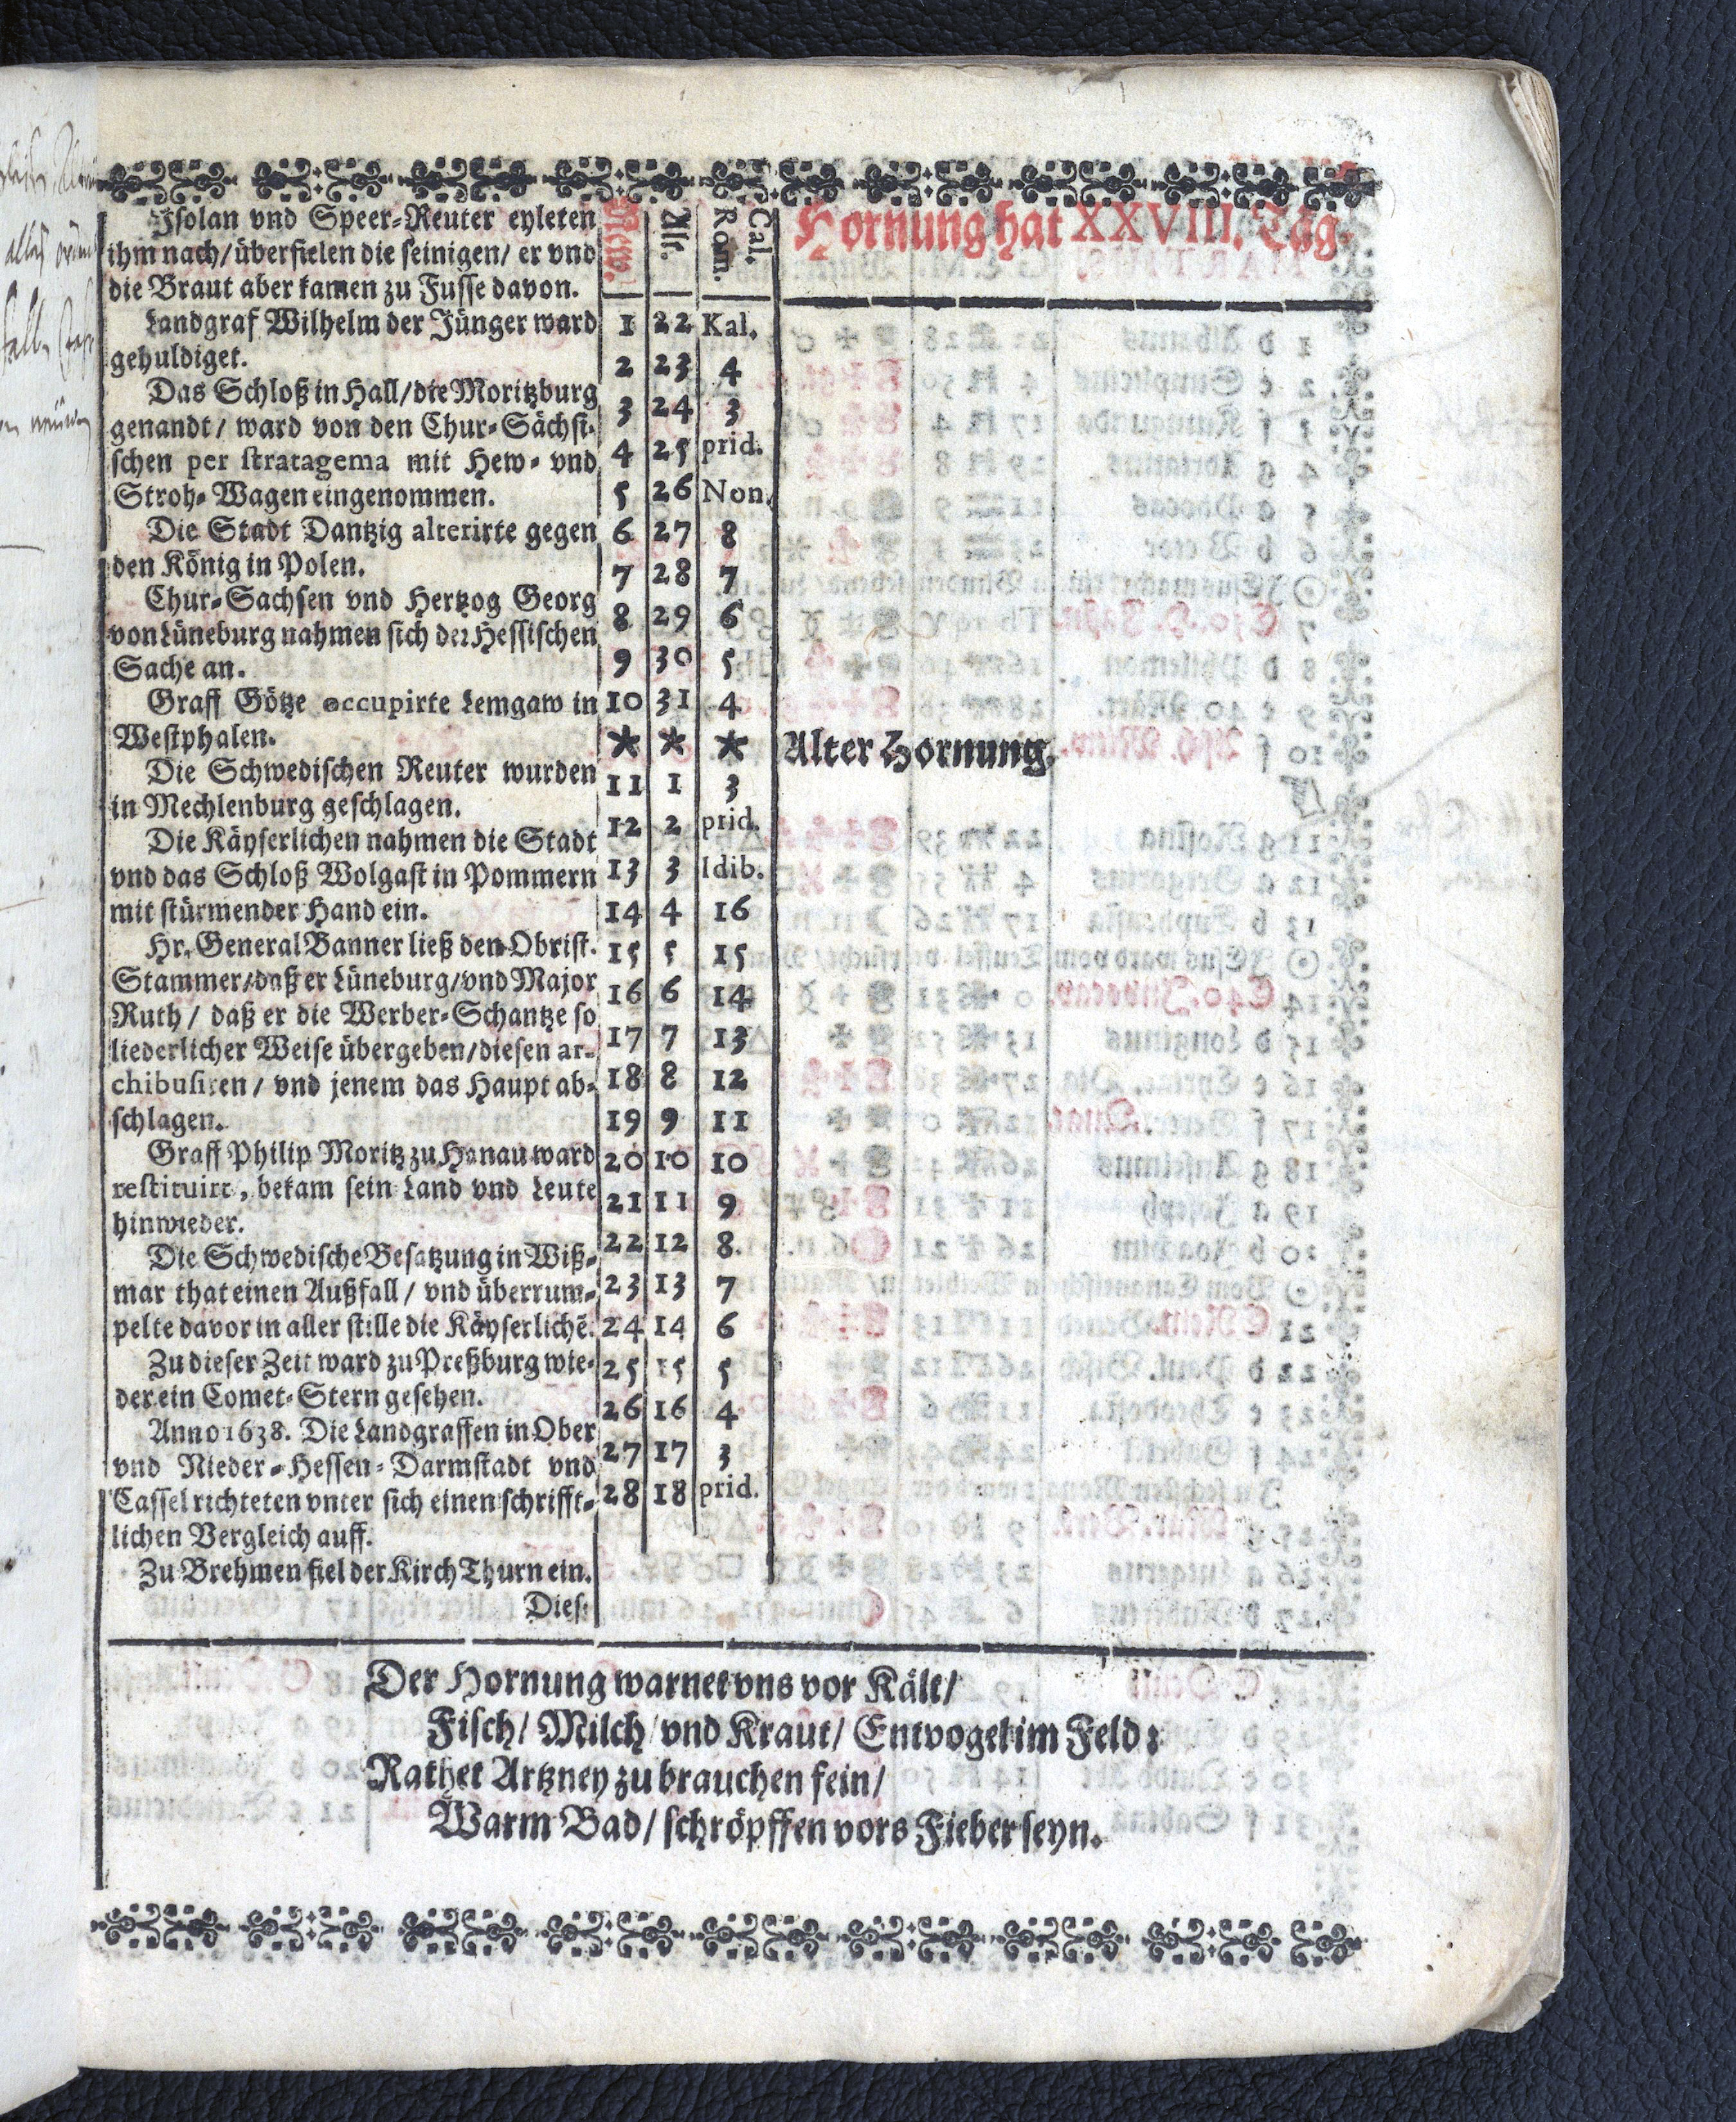 Isolan vnd Speer-Reuter eyleten
ihm nach/ überfielen die seinigen/ er vnd
die Braut aber kamen zu Fusse davon.
Landgraf Wilhelm der Jünger ward
gehuldiget.
Das Schloß in Hall/ die Moritzburg
genandt/ ward von den Chur-Sächsi-
schen per stratagema mit Hew- vnd
Stroh-Wagen eingenommen.
Die Stadt Dantzig altcrirte gegen
den König in Polen.
Chur-Sachsen vnd Hertzog Georg
von Lüneburg nahmen sich der Hessischen
Sache an.
Graff Götze occupirte Lemgaw in
Westphalen.
Die Schwedischen Reuter wurden
in Mechlenburg geschlagen.
Die Käyserlichen nahmen die Stadt
vnd das Schloß Wolgast in Pommern
mit stürmender Hand ein.
Hr. General Banner ließ den Obrist.
Stammer/ daß er Lüneburg/ vnd Major
Ruth/ daß er die Werber-Schantze so
liederlicher Weise übergeben/ diesen ar-
chibusiren/ vnd jenem das Haupt ab-
schlagen.
Graff Philip Moritz zu Hanau ward
restituirt, bekam sein Land vnd Leute
hinwieder.
Die Schwedische Besatzung in Wiß-
mar that einen Außfall/ vnd überrum-
pelte davor in aller stille die Käyserlichē.
Zu dieser Zeit ward zu Preßburg wie-
der ein Comet-Stern gesehen.
Anno 1638. Die Landgraffen in Ober
vnd Nieder-Hessen-Darmstadt vnd
Cassel richteten vnter sich einen schrifft-
lichen Vergleich auff.
Zu Brehmen fiel der Kirch Thurn ein.
Dies:
New. Alt. Cal. Rom.
Hornung hat XXVIII. Tag.
1 22 Kal.
2 23 4
3 24 3
4 25 prid.
5 26 Non.
6 27 8
7 28 7
8 29 6
9 30 5
10 31 4
* * * Alter Hornung.
11 1 3
12 2 prid.
13 3 Idib.
14 4 16
15 5 15
16 6 14
17 7 13
18 8 12
19 9 11
20 10 10
21 11 9
22 12 8.
23 13 7
24 14 6
25 15 5
26 16 4
27 17 3
28 18 prid.
Der Hornung warnet vns vor Kält/
Fisch/ Milch/ vnd Kraut/ Entvogel im Feld:
Rathet Artzney zu brauchen fein/
Warm Bad/ schröpffen vors Fieber seyn.